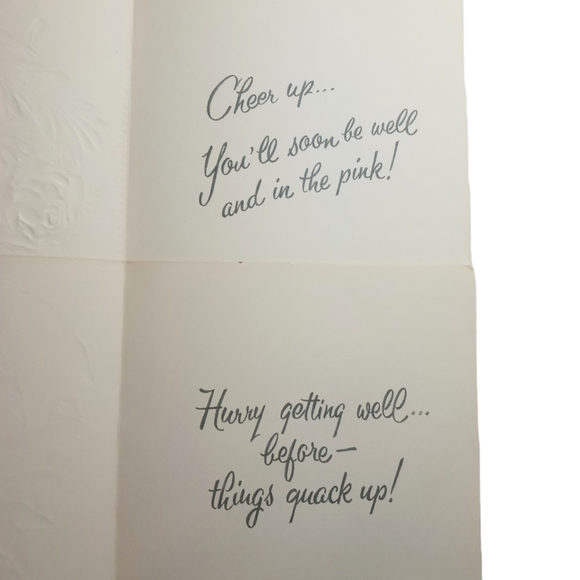 Cheer up...
You'll soon be well
and in the pink!
Hurry getting well...
before—
things quack up!